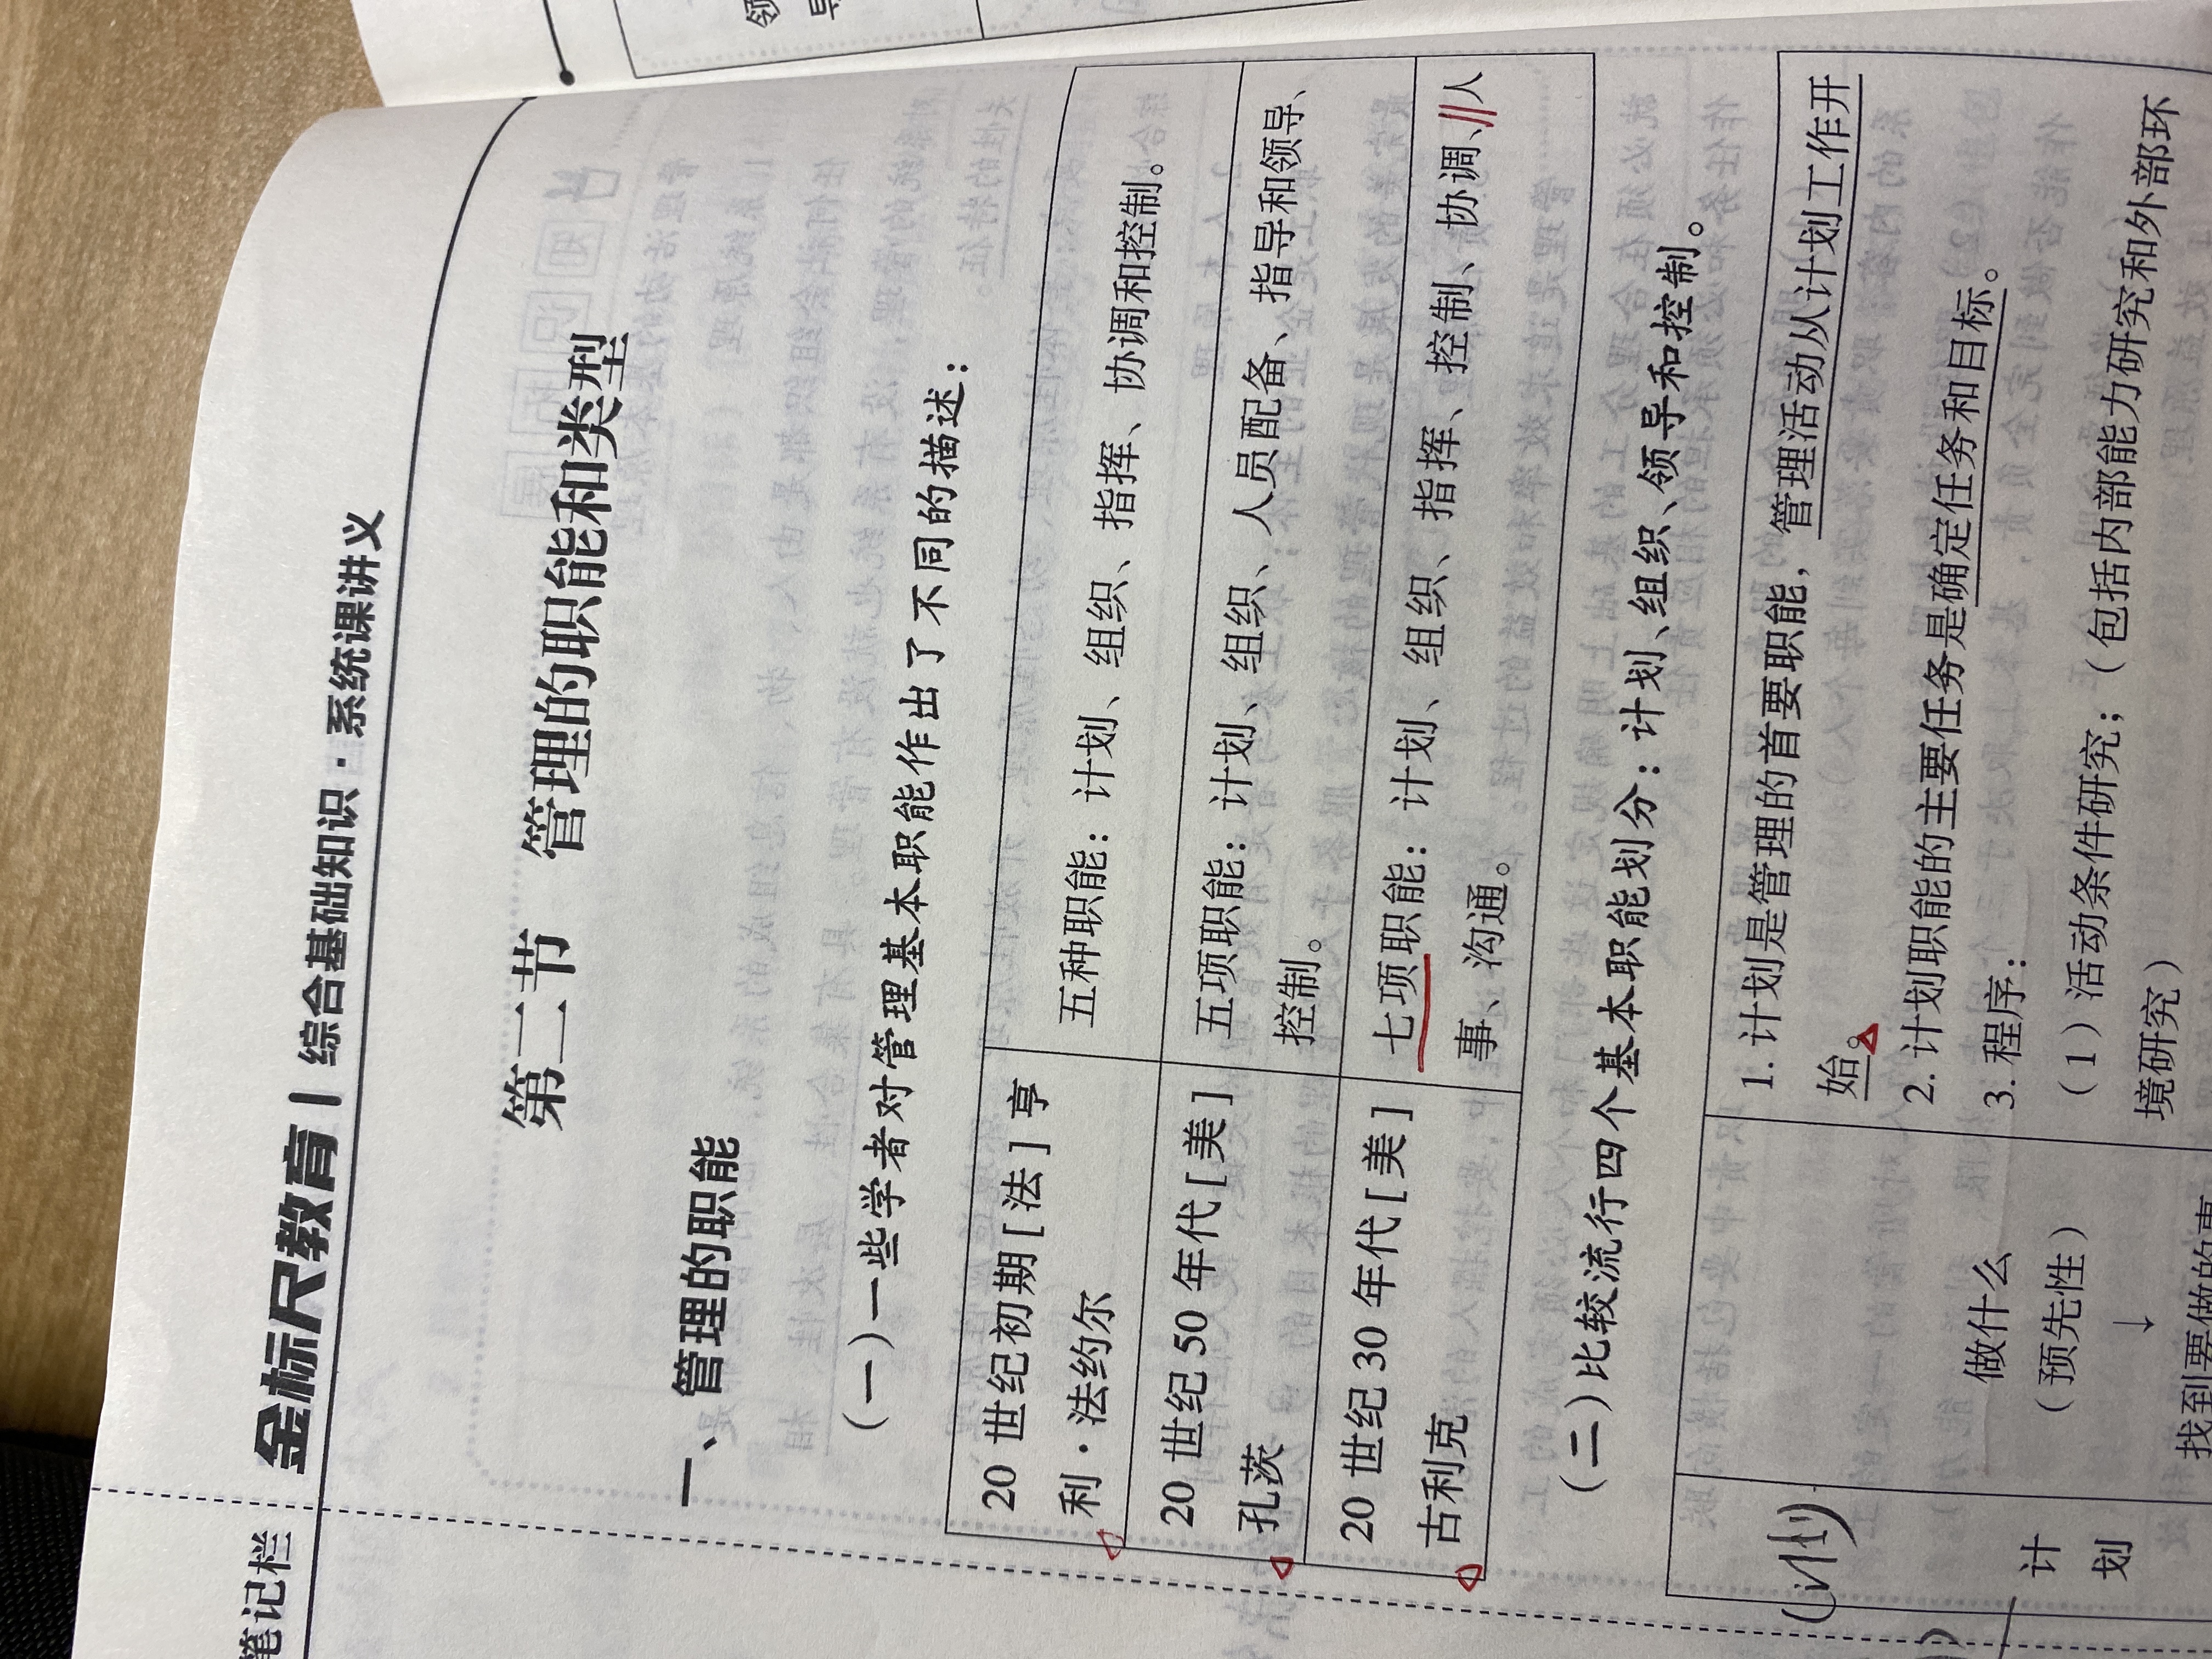 笔记栏
金标尺教育 | 综合基础知识·系统课讲义
第二节 管理的职能和类型
一、管理的职能
（一）一些学者对管理基本职能作出了不同的描述：
20 世纪初期［法］亨
利·法约尔
五种职能：计划、组织、指挥、协调和控制。
20 世纪 50 年代［美］
孔茨
五项职能：计划、组织、人员配备、指导和领导、
控制。
20 世纪 30 年代［美］
古利克
七项职能：计划、组织、指挥、控制、协调、人
事、沟通。
（二）比较流行四个基本职能划分：计划、组织、领导和控制。
计
划
做什么
（预先性）
↓
找到要做的事
1. 计划是管理的首要职能，管理活动从计划工作开
始。
2. 计划职能的主要任务是确定任务和目标。
3. 程序：
（1）活动条件研究；（包括内部能力研究和外部环
境研究）